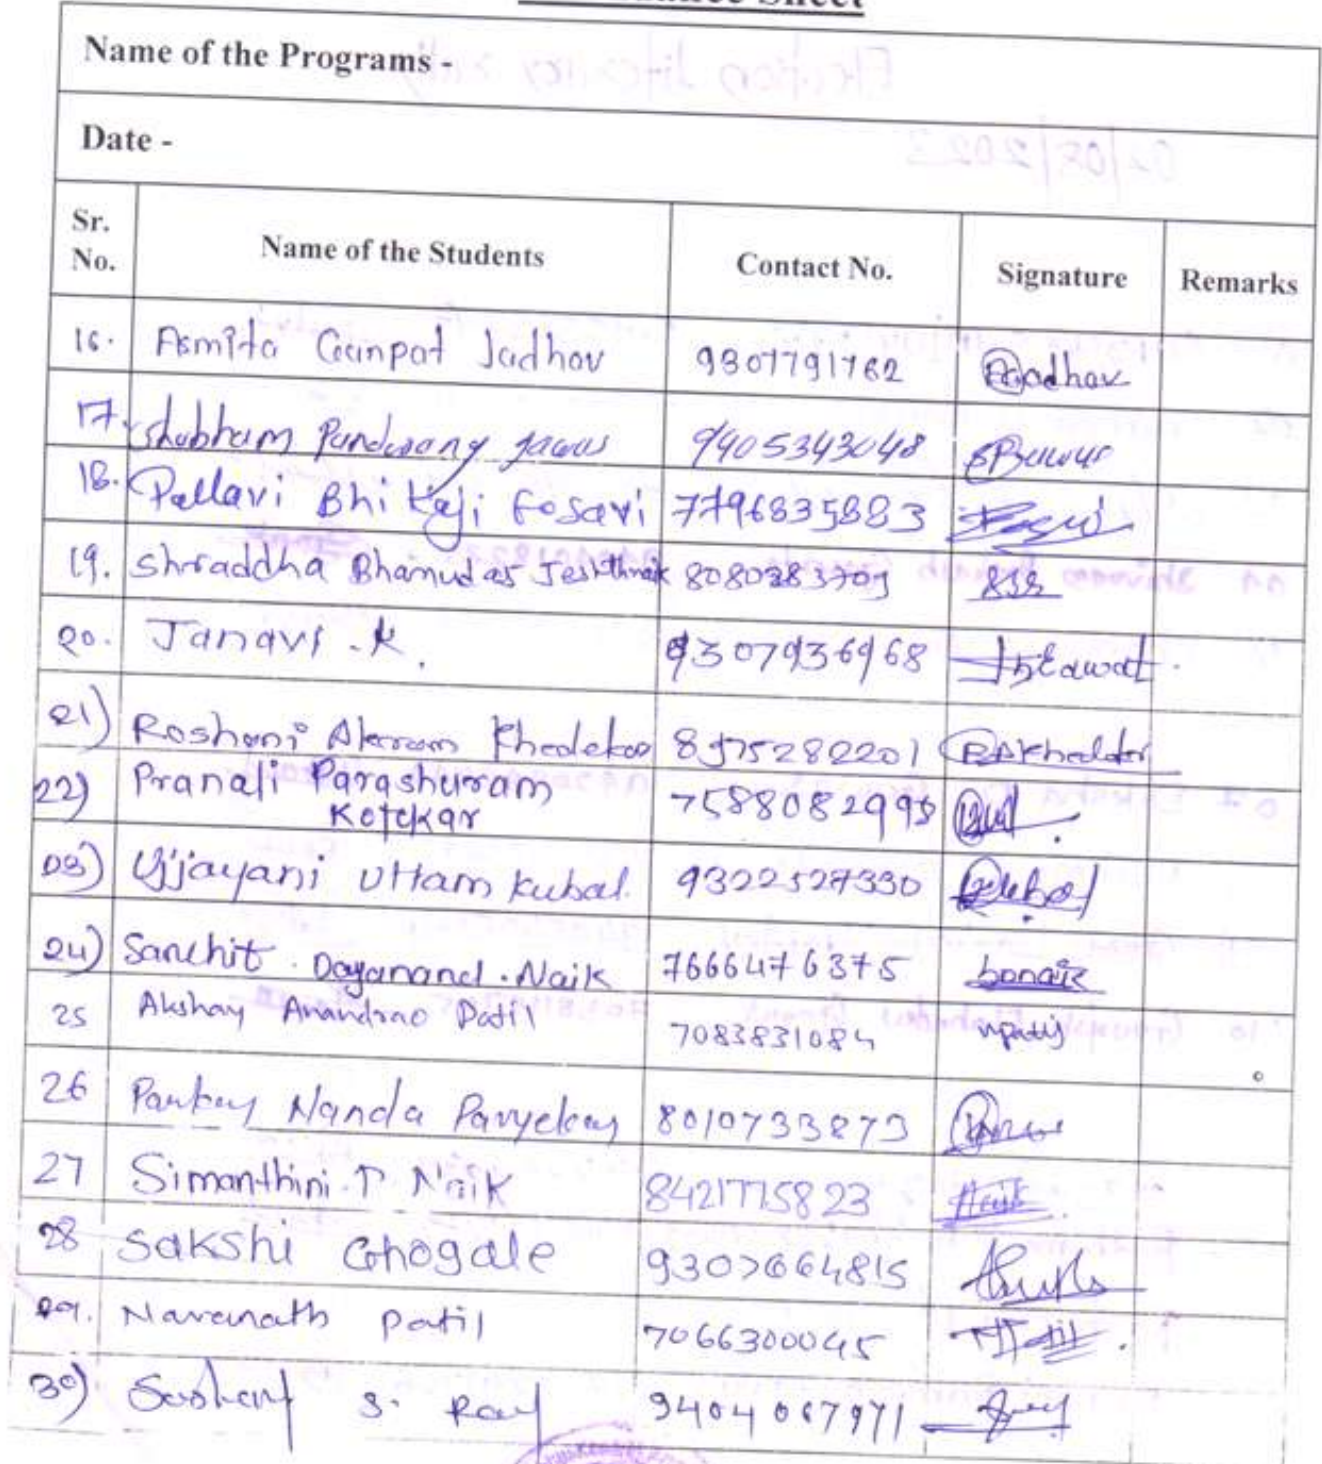 Sheet
Name of the Programs -
Date -
Sr. No. Name of the Students Contact No. Signature Remarks
16. Asmita Ganpat Jadhav 9307791762 Jadhav
17. Shubham Pandurang 9405343048
18. Pallavi Bhikaji Gosavi 7796835883
19. Shraddha Bhanudas 8080283709
20. Janavi .K. 9307936968
21) Roshani Akaram Khedekar 8975282201 RAKhedekar
22) Pranali Parashuram
Kotekar 7588082998
23) Ujjayani Uttam Kubal. 9322527330 Kubal
24) Sanchit . Dayanand . Naik 7666476375
25 Akshay Anandrao Patil 7083831084
26 Nanda 8010733873
27 Simanthini P Naik 8421775823 Naik
28 Sakshi Ghogale 9307664815
29. Navanath Patil 7066300045
30) S. 9404067971